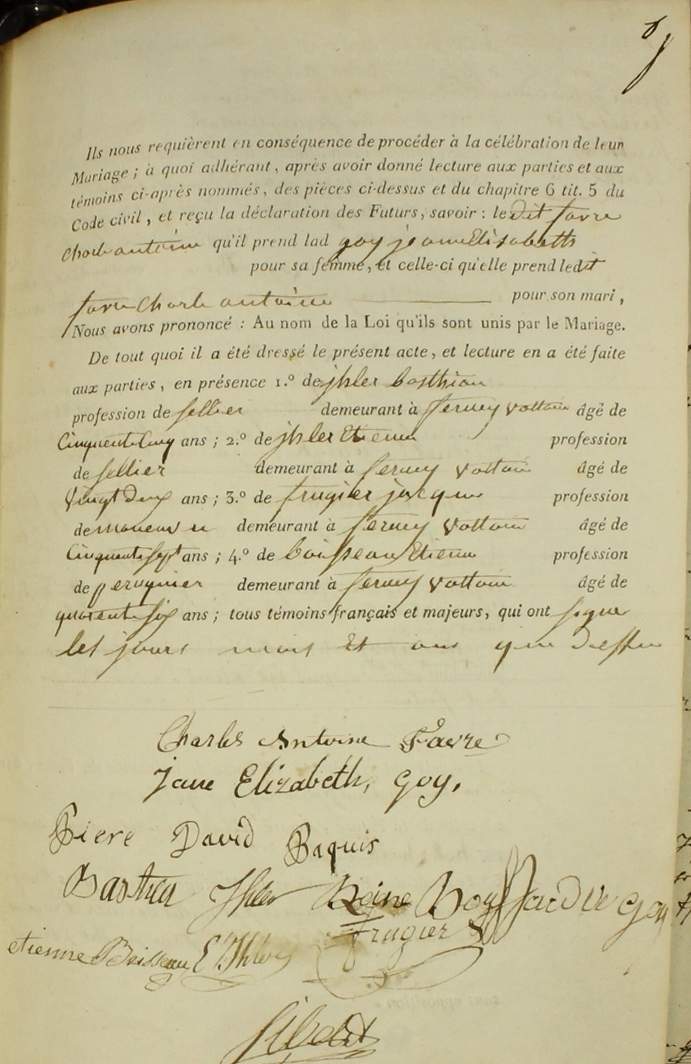 Ils nous requièrent en conséquence de procéder à la célébration de leur
Mariage ; à quoi adhérant, après avoir donné lecture aux parties et aux
témoins ci-après nommés, des pièces ci-dessus et du chapitre 6 tit. 5 du
Code civil, et reçu la déclaration des Futurs, savoir : le dit favre
Charle antoine qu'il prend lad goy jeanne Elisabeth
pour sa femme, et celle-ci qu'elle prend ledit
favre Charle antoine pour son mari,
Nous avons prononcé : Au nom de la Loi qu'ils sont unis par le Mariage.
De tout quoi il a été dressé le présent acte, et lecture en a été faite
aux parties, en présence 1.º de jhler basthian
profession de sellier demeurant à ferney voltaire âgé de
Cinquente Cinq ans ; 2.º de jhler Etienne profession
de sellier demeurant à ferney voltaire âgé de
vingt deux ans ; 3.º de frugier jacque profession
de demeurant à ferney voltaire âgé de
Cinquente sept ans ; 4.º de boisseau Etienne profession
de peruquier demeurant à ferney voltaire âgé de
quarente six ans ; tous témoins français et majeurs, qui ont signe
les jours mois et ans que dessus
Charles Antoine Favre
Jane Elizabeth, goy.
Piere David Paquis
Bastien Jhler Reine Goy
Frugier
etienne Boisseau E Jhler